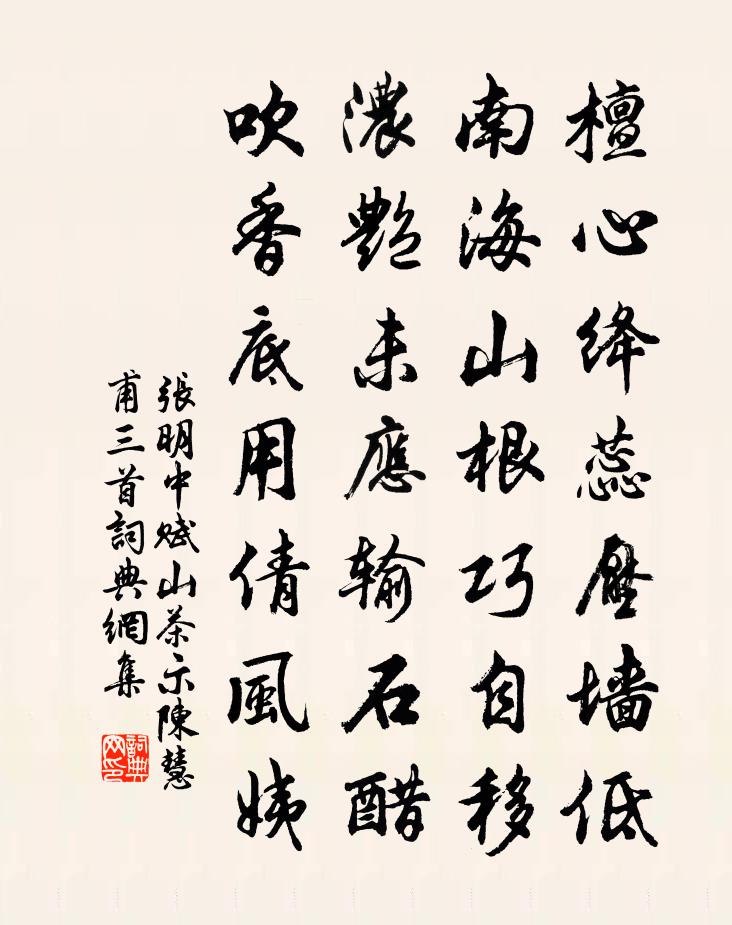 檀心绛蕊壓墙低
南海山根巧自移
濃艷未應输石醋
吹香底用倩風姨
張明中赋山茶示陳慧
甫三首詞典網集
詞典网印